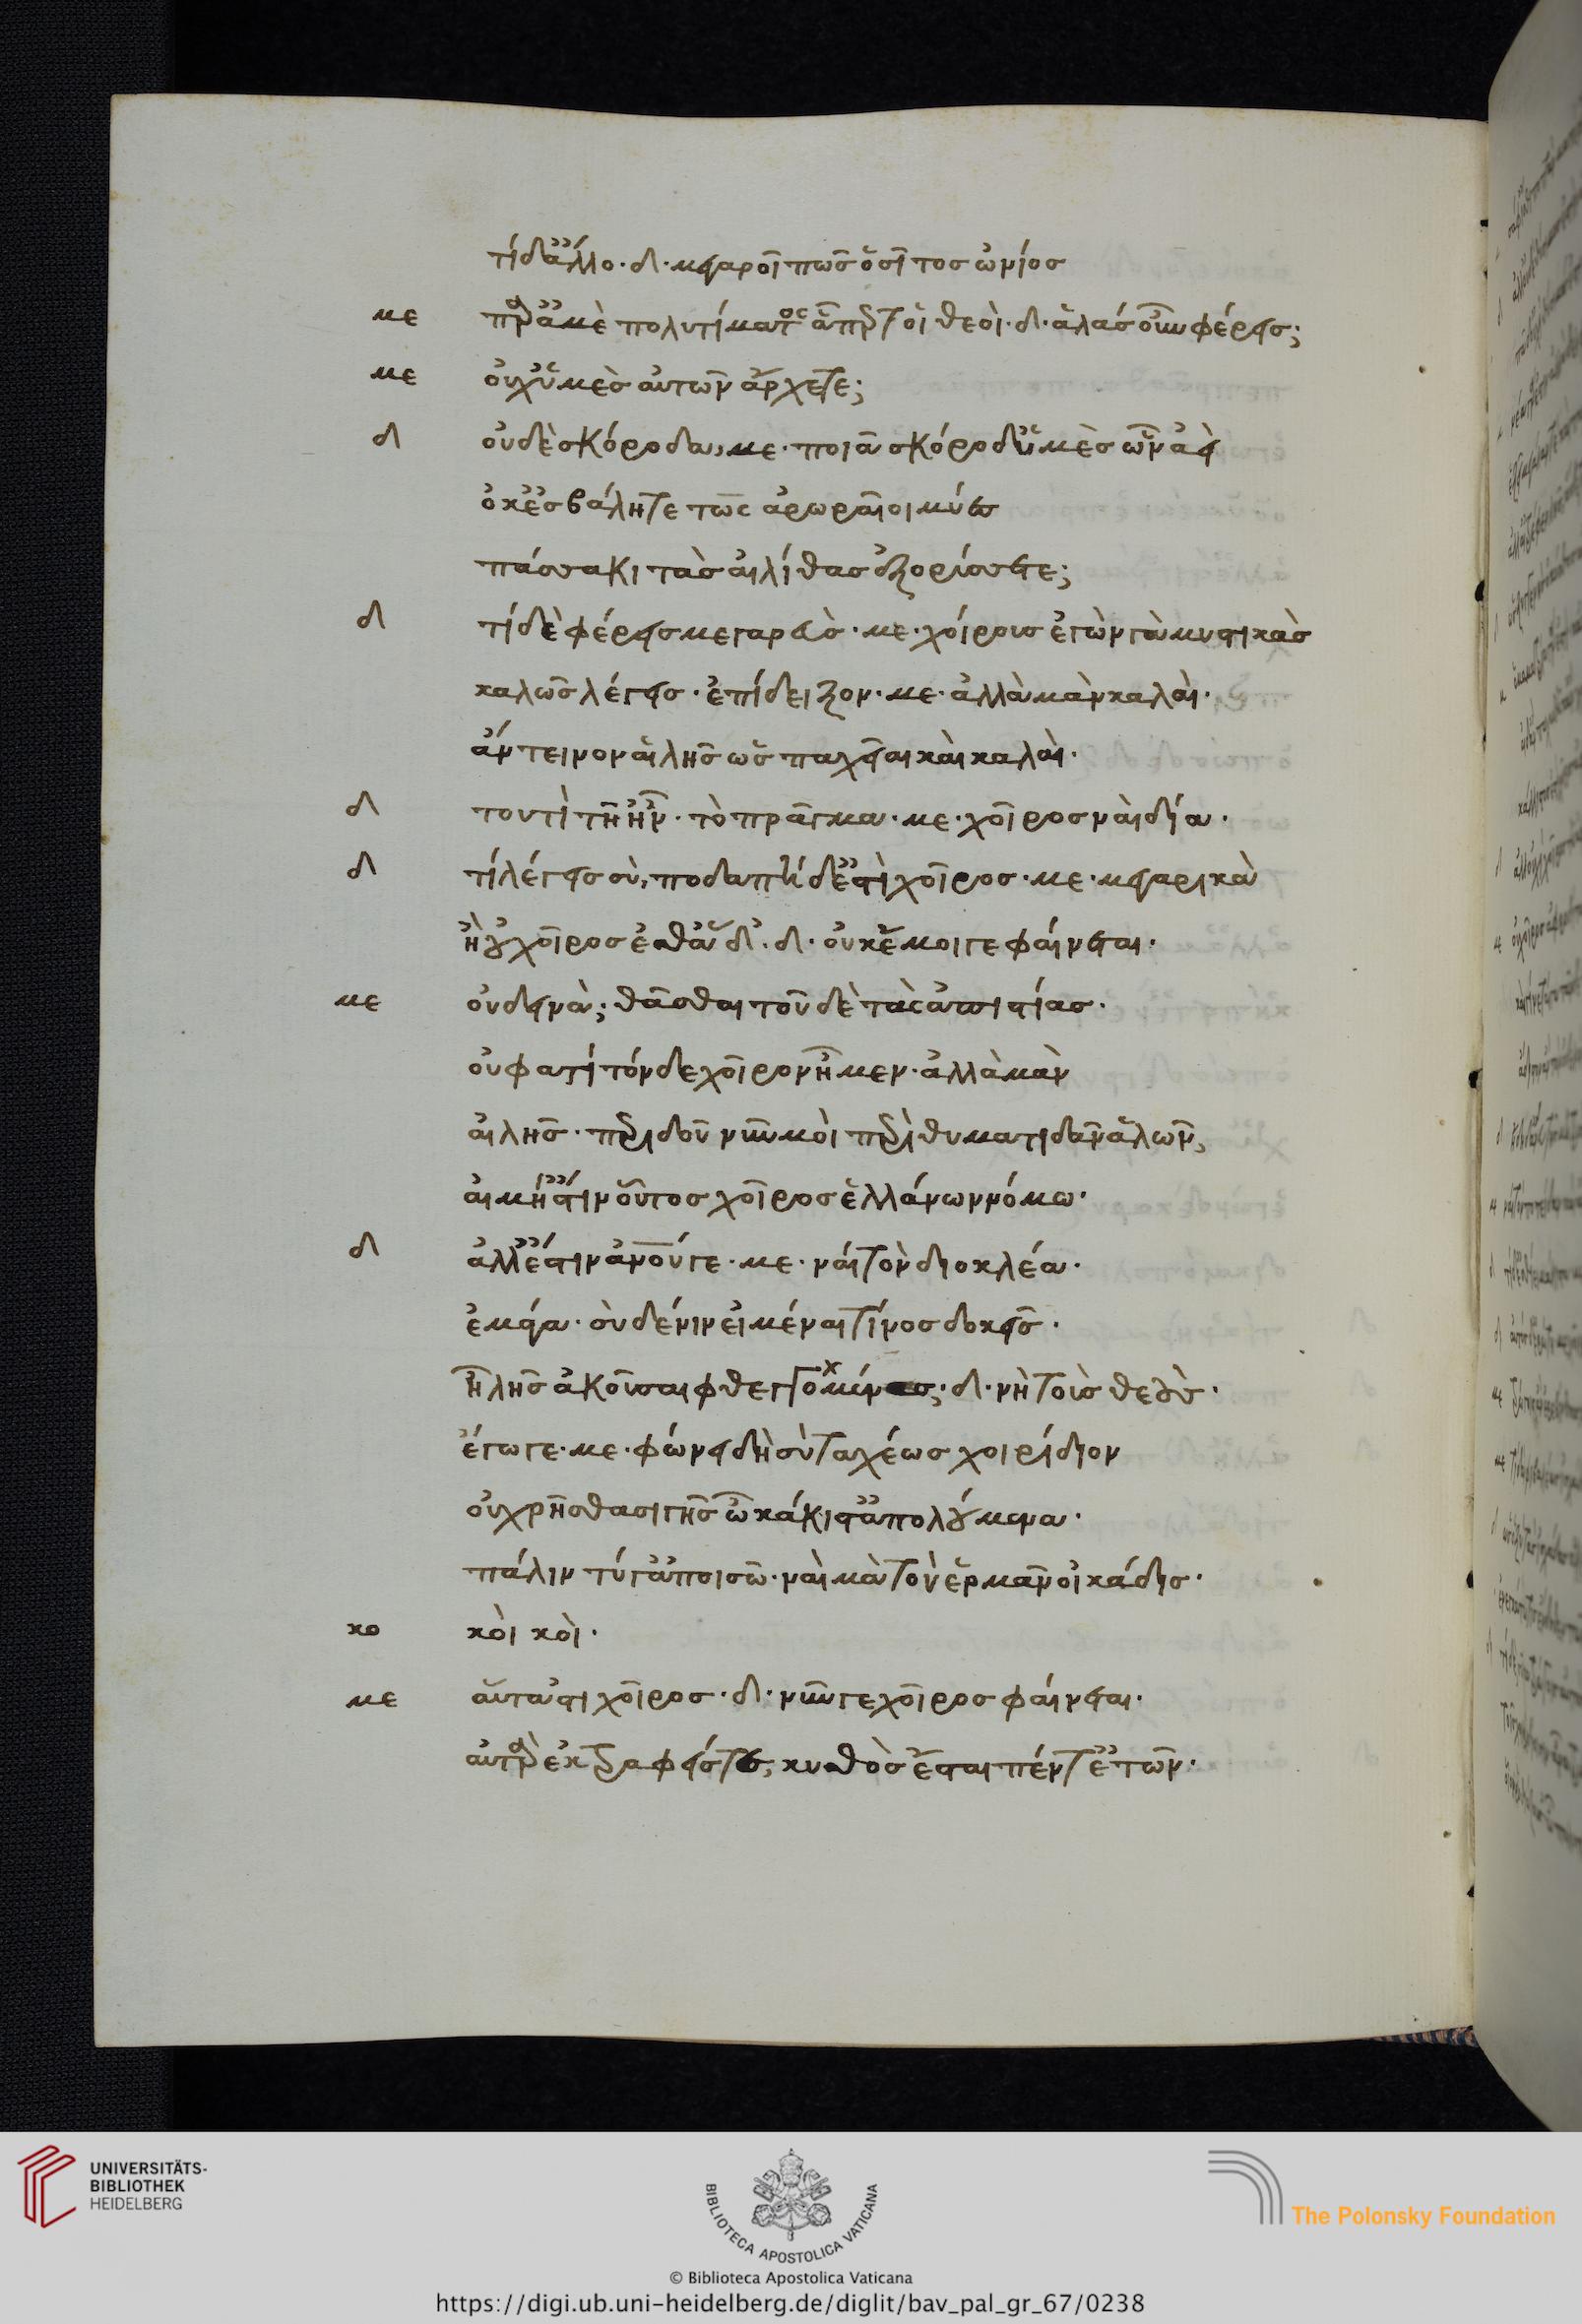 τί δ' ἄλλο. δι. μεγαροῖ πῶς ὁ σῖτος ὤνιος
με παρ' ἁμὲ πολυτίματος ἅπερ τοὶ θεοί. δι. ἅλας οὖν φέρεις;
με οὐχ ὑμὲς αὐτῶν ἄρχετε;
δι οὐδὲ σκόροδα, με. ποῖα σκόροδ' ὑμὲς ὧν ἀεὶ
ὅκκ' ἐσβάλητε τὼς ἀρωραῖοι μύες
πάσσακι τὰς ἄγλιθας ἐξορύσσετε;
δι τί δὲ φέρεις μεγαρεύς. με. χοίρους ἐγώνγα μυστικάς
καλῶς λέγεις. ἐπίδειξον. με. ἀλλὰ μὰν καλαί.
ἄντεινον αἲ λῇς ὡς παχεῖαι καὶ καλαί.
δι τουτὶ τί ἦν. τὸ πρᾶγμα. με. χοῖρος ναὶ δία.
δι τί λέγεις σύ, ποδαπὴ δ' ἐστὶ χοῖρος. με. μεγαρικά
ἢ οὐ χοῖρος ἐσθ' ἅδ'. δι. οὐκ ἔμοιγε φαίνεται.
με οὐ δεινά; θᾶσθαι τοῦδε τὰς ἀπιστίας.
οὔ φατι τόνδε χοῖρον ἦμεν. ἀλλὰ μὰν
αἲ λῇς. περίδου νῦν μοι περὶ θυματιδᾶν ἁλῶν,
αἲ μή 'στιν οὗτος χοῖρος ἑλλάνων νόμω.
δι ἀλλ' ἔστιν ἀνθρώπου γε. με. ναὶ τὸν διοκλέα.
ἐμά γα. σὺ δέ νιν εἴμεναι τίνος δοκεῖς.
ἦ λῇς ἀκοῦσαι φθεγγομένας; δι. νὴ τοὺς θεούς.
ἔγωγε. με. φώνει δὴ σὺ ταχέως χοιρίδιον
οὐ χρῆσθα σιγῇς ὦ κάκιστ' ἀπολουμένα.
πάλιν τύ γ' ἀποισῶ. ναὶ μὰ τὸν ἑρμᾶν οἰκάδις.
κο κοὶ κοί.
με αὕτα 'στὶ χοῖρος. δι. νῦν γε χοῖρος φαίνεται.
ἀτὰρ ἐκτραφείς γε, κυσθὸς ἔσται πέντ' ἐτῶν.
UNIVERSITÄTS-
BIBLIOTHEK
HEIDELBERG
BIBLIOTECA APOSTOLICA VATICANA
The Polonsky Foundation
© Biblioteca Apostolica Vaticana
https://digi.ub.uni-heidelberg.de/diglit/bav_pal_gr_67/0238